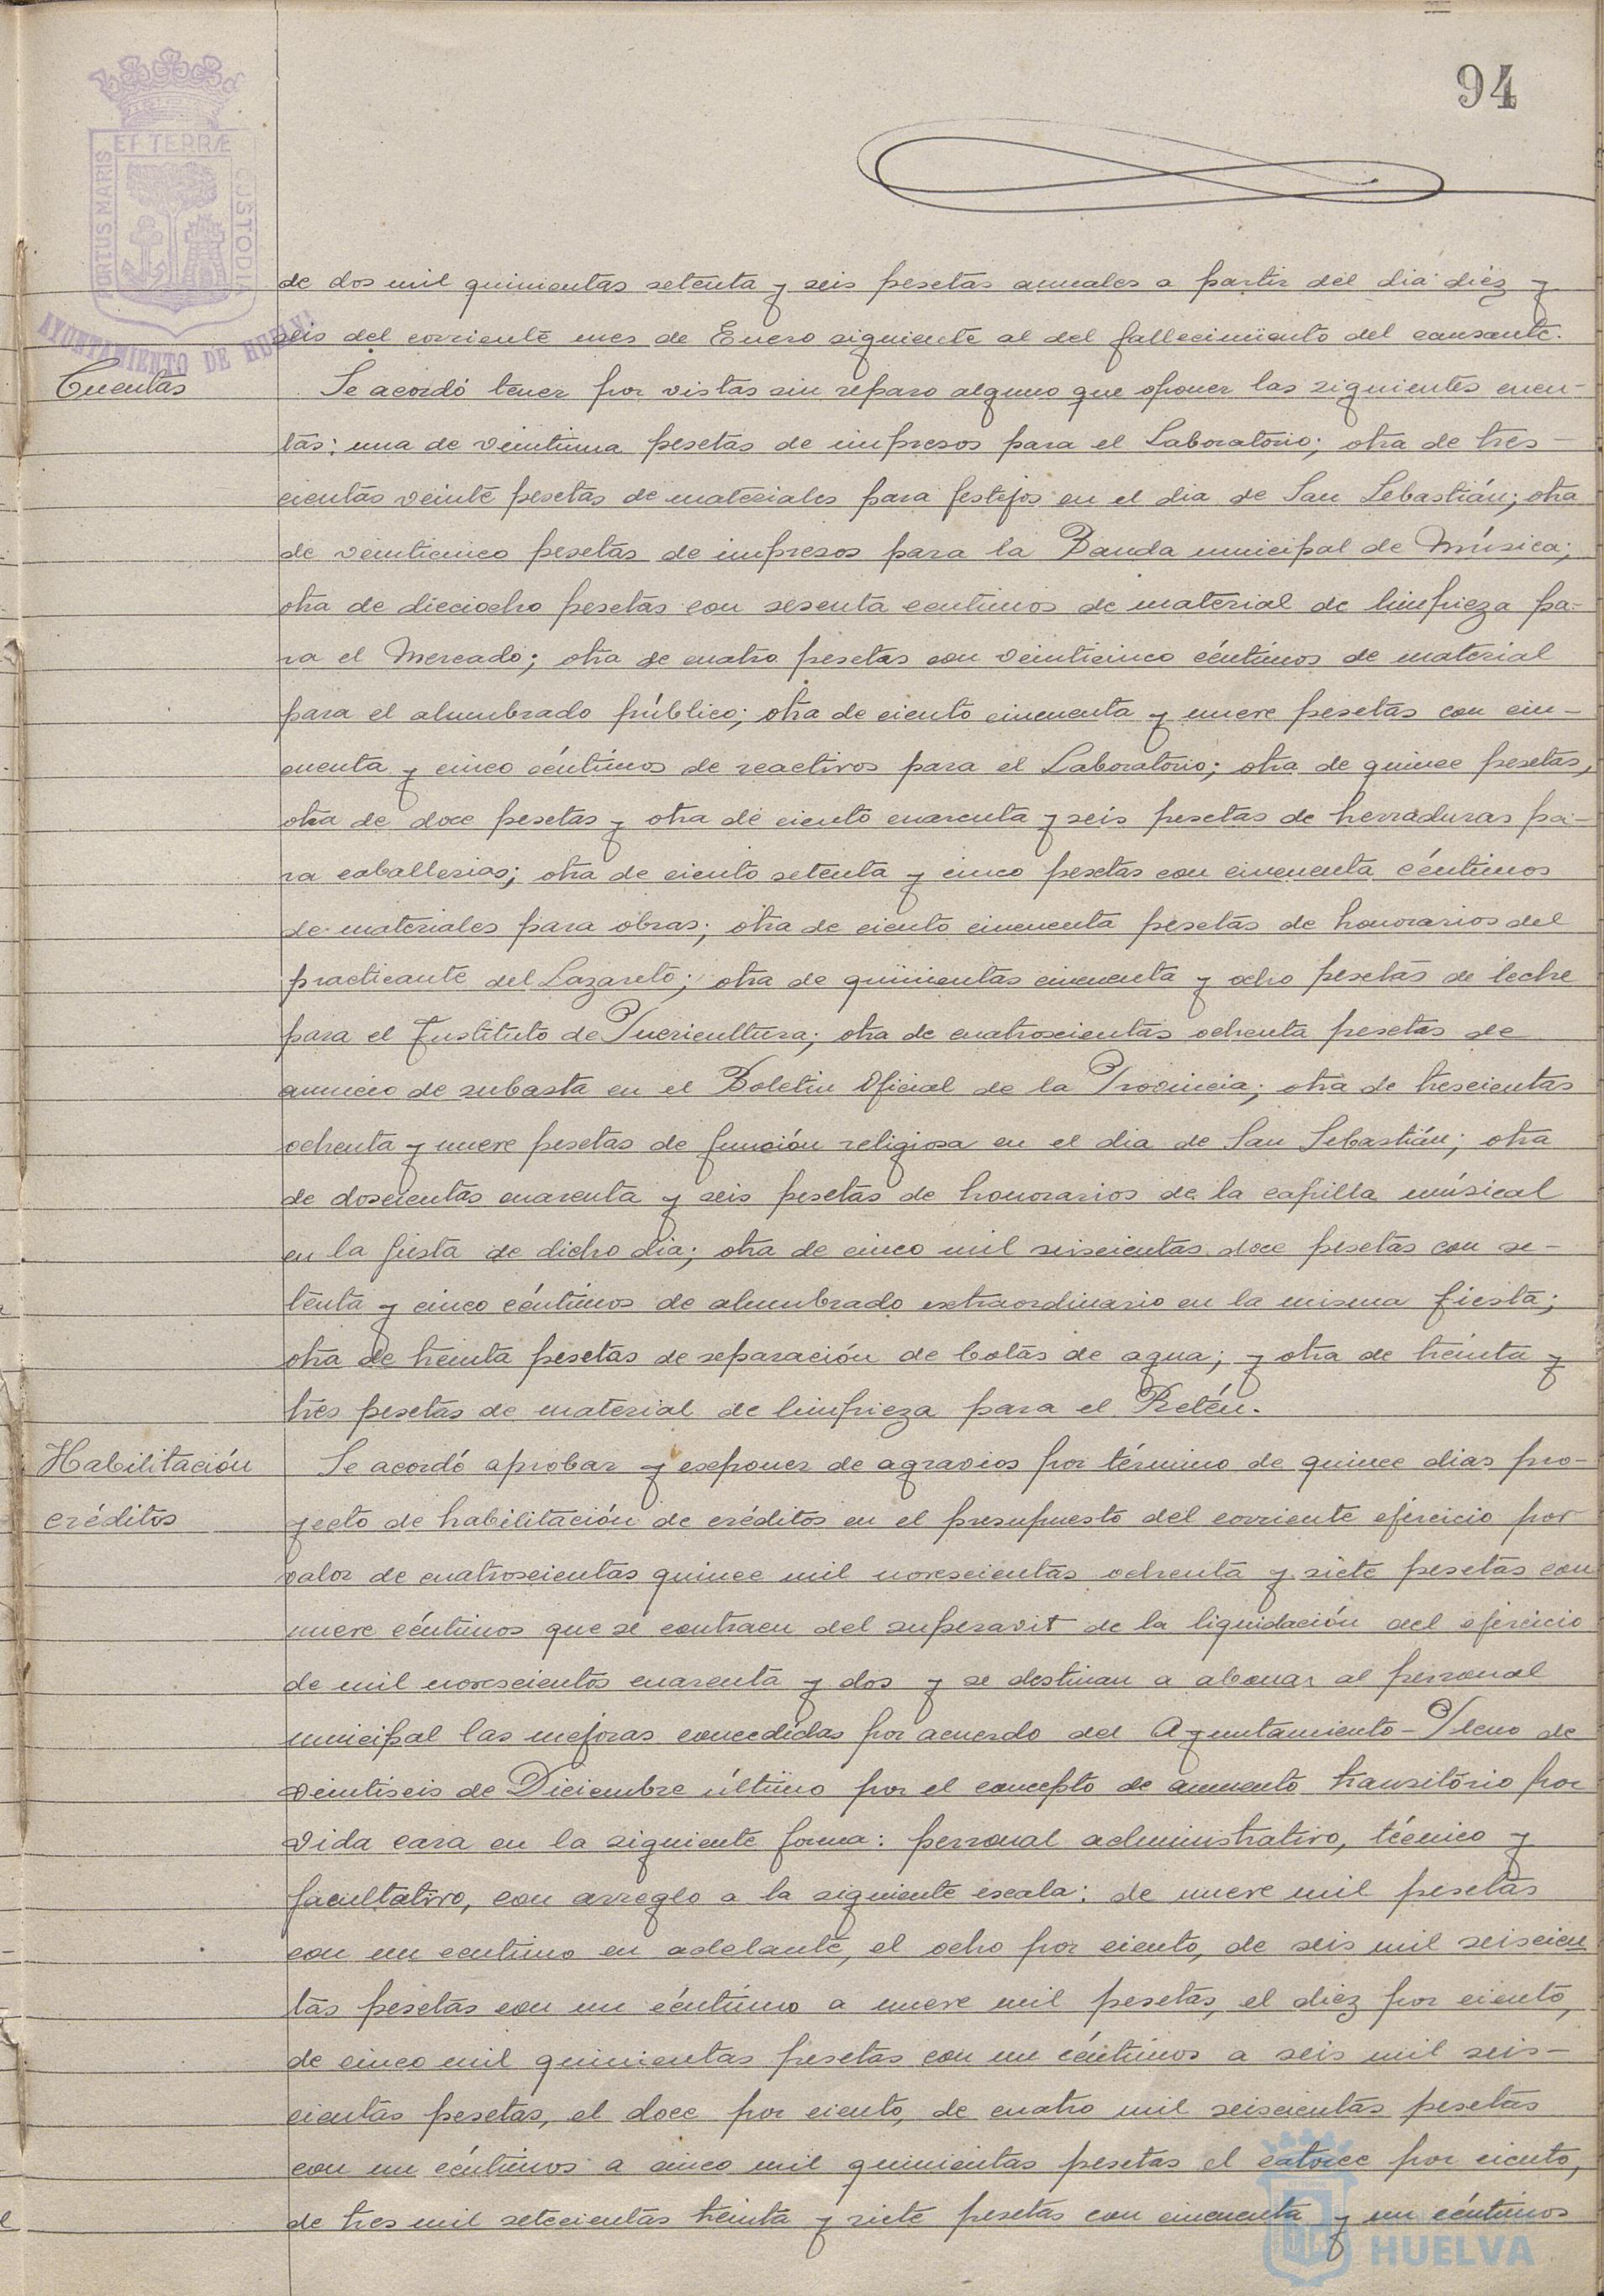 94
PORTUS MARIS ET TERRÆ CUSTODIA
AYUNTAMIENTO DE HUELVA
de dos mil quinientas setenta y seis pesetas anuales a partir del dia diéz y
seis del corriente mes de Enero siguiente al del fallecimiento del causante.
Cuentas
Se acordó tener por vistas sin reparo alguno que oponer las siguientes cuen-
tas: una de veintiuna pesetas de impresos para el Laboratorio; otra de tres-
cientas veinte pesetas de materiales para festejos en el dia de San Sebastián; otra
de veinticinco pesetas de impresos para la Banda municipal de Música;
otra de dieciocho pesetas con sesenta centimos de material de limpieza pa-
ra el Mercado; otra de cuatro pesetas con veinticinco céntimos de material
para el alumbrado público; otra de ciento cincuenta y nueve pesetas con cin-
cuenta y cinco céntimos de reactivos para el Laboratorio; otra de quince pesetas,
otra de doce pesetas y otra de ciento cuarenta y seis pesetas de herraduras pa-
ra caballerias; otra de ciento setenta y cinco pesetas con cincuenta céntimos
de materiales para obras; otra de ciento cincuenta pesetas de honorarios del
practicante del Lazareto; otra de quinientas cincuenta y ocho pesetas de leche
para el Instituto de Puericultura; otra de cuatroscientas ochenta pesetas de
anuncio de subasta en el Boletin Oficial de la Provincia; otra de trescientas
ochenta y nueve pesetas de función religiosa en el dia de San Sebastián; otra
de doscientas cuarenta y seis pesetas de honorarios de la capilla músical
en la fiesta de dicho dia; otra de cinco mil seiscientas doce pesetas con se-
tenta y cinco céntimos de alumbrado extraordinario en la misma fiesta;
otra de treinta pesetas de reparación de botas de agua; y otra de treinta y
tres pesetas de material de limpieza para el Retén.
Habilitación
créditos
Se acordó aprobar y exponer de agravios por término de quince dias pro-
yecto de habilitación de créditos en el presupuesto del corriente ejercicio por
valor de cuatroscientas quince mil novescientas ochenta y siete pesetas con
nueve céntimos que se contraen del superavit de la liquidación del ejercicio
de mil novescientos cuarenta y dos y se destinan a abonar al personal
municipal las mejoras concedidas por acuerdo del Ayuntamiento-Pleno de
veintiseis de Diciembre último por el concepto de aumento transitório por
vida cara en la siguiente forma: personal administrativo, técnico y
facultativo, con arreglo a la siguiente escala: de nueve mil pesetas
con un centimo en adelante, el ocho por ciento, de seis mil seiscien
tas pesetas con un céntimo a nueve mil pesetas, el diez por ciento,
de cinco mil quinientas pesetas con un céntimos a seis mil seis-
cientas pesetas, el doce por ciento, de cuatro mil seiscientas pesetas
con un céntimos a cinco mil quinientas pesetas el catorce por ciento,
de tres mil setecientas treinta y siete pesetas con cincuenta y un céntimos
HUELVA